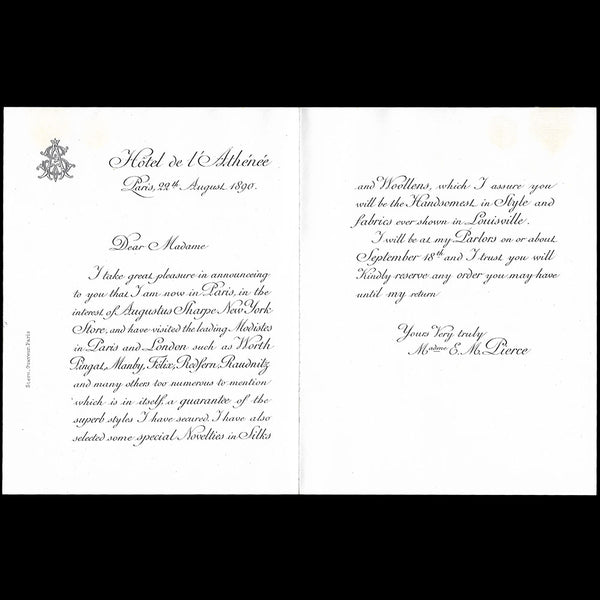 Hôtel de l'Athénée
Paris, 22th August 1890.
Dear Madame
I take great pleasure in announcing
to you that I am now in Paris, in the
interest of Augustus Sharpe New York
Store, and have visited the leading Modistes
in Paris and London such as Worth
Pingat, Manby, Félix, Redfern, Raudnitz
and many others too numerous to mention
which is in itself a guarantee of the
superb styles I have secured. I have also
selected some special Novelties in Silks
and Woollens, which I assure you
will be the Handsomest in Style and
fabrics ever shown in Louisville.
I will be at my Parlors on or about
September 18th and I trust you will
Kindly reserve any order you may have
until my return
Yours Very truly
Madme E. M. Pierce